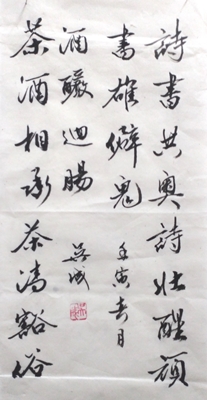 詩書共奧詩壯醒頑
書雄僻鬼
壬寅春月
酒釅迴腸
茶酒相承茶清豁俗